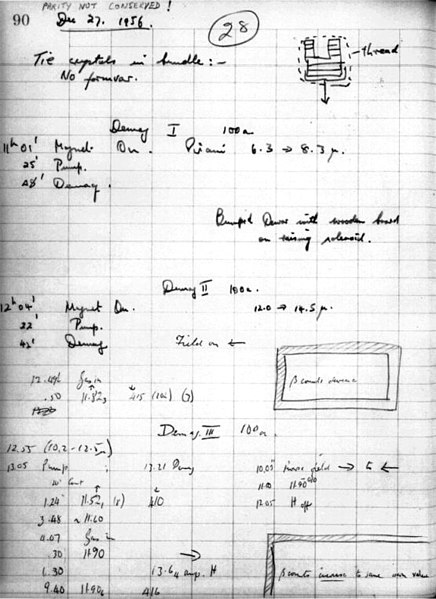 PARITY NOT CONSERVED!
90 Dec 27. 1956.
28
Tie crystals in bundle :-
No formvar.
thread
Demag I 100a
11h 01' Magnet On. Pirani 6.3 → 8.3 μ.
25' Pump.
48' Demag.
Bumped Dewar with wooden board
on raising solenoid.
Demag II 100a.
12h 04' Magnet On. 12.0 → 14.5 μ.
22' Pump.
43' Demag Field on ←
12.49½ Gas in
.50 11.82½ 415
β counts decrease
Demag. III 100a.
12.55 (10.2 - 12.5μ)
13.05 Pump. 13.21 Demag
10.05 field → to ←
11.10 11.90
12.05 H off
1.24 11.52½ 410
3.48 11.60
4.07 Gas in
.30 11.90 →
6.30 13.64 amp. H
9.40 11.90 416
β counts increase to same value